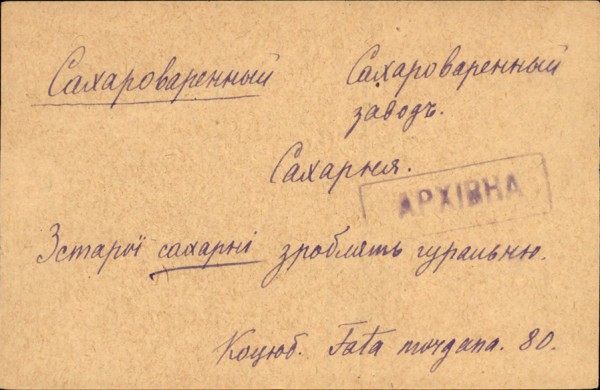 Сахароваренный Сахароваренный
заводъ.
Сахарня.
АРХІВНА
З старої сахарні зроблять гуральню.
Коцюб. Fata morgana. 80.